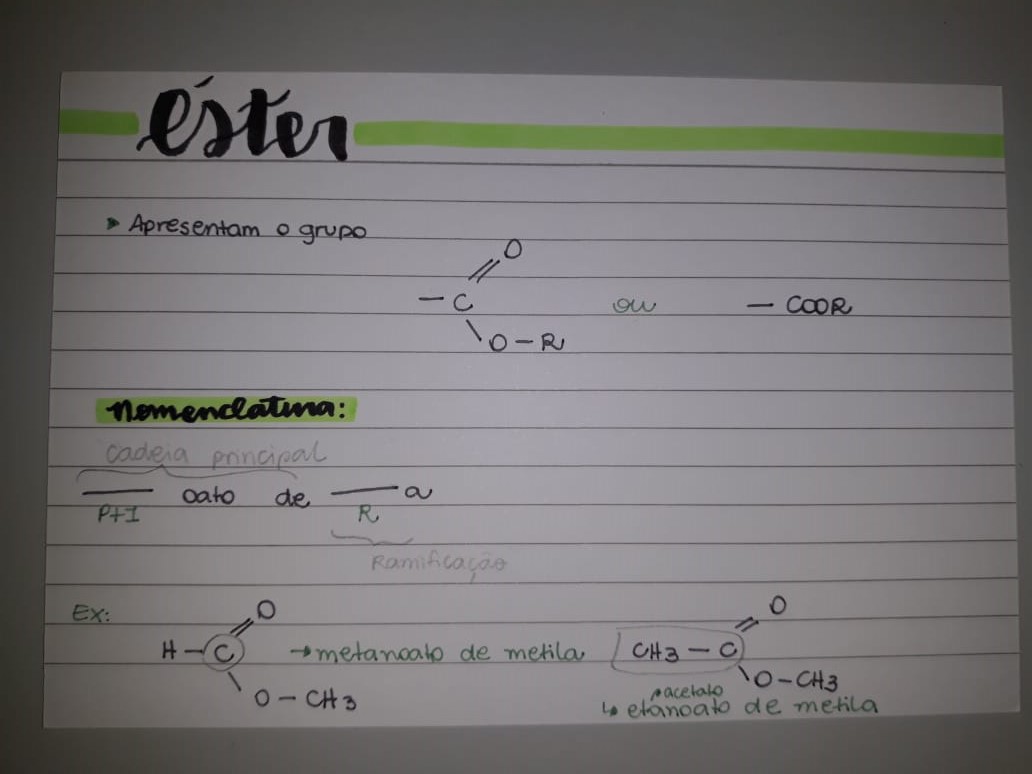 éster
▸ Apresentam o grupo
O
— C ou — COOR
O — R
nomenclatura:
cadeia principal
___ oato de ___ a
P+I R
Ramificação
Ex:
O O
H — C → metanoato de metila CH3 — C
O — CH3 O — CH3
acetato
↳ etanoato de metila